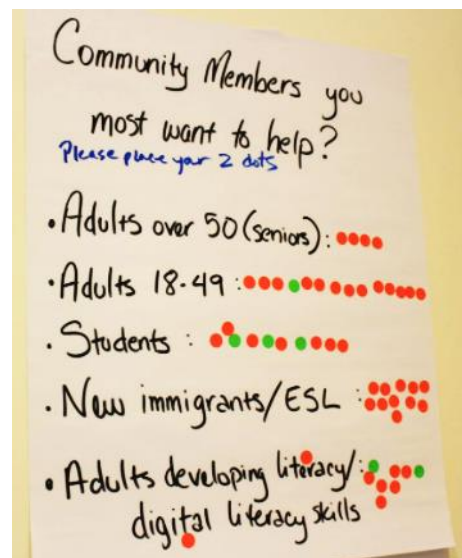 Community Members you
most want to help?
Please place your 2 dots
• Adults over 50 (seniors):
• Adults 18-49 :
• Students :
• New immigrants/ESL :
• Adults developing literacy/:
digital literacy skills